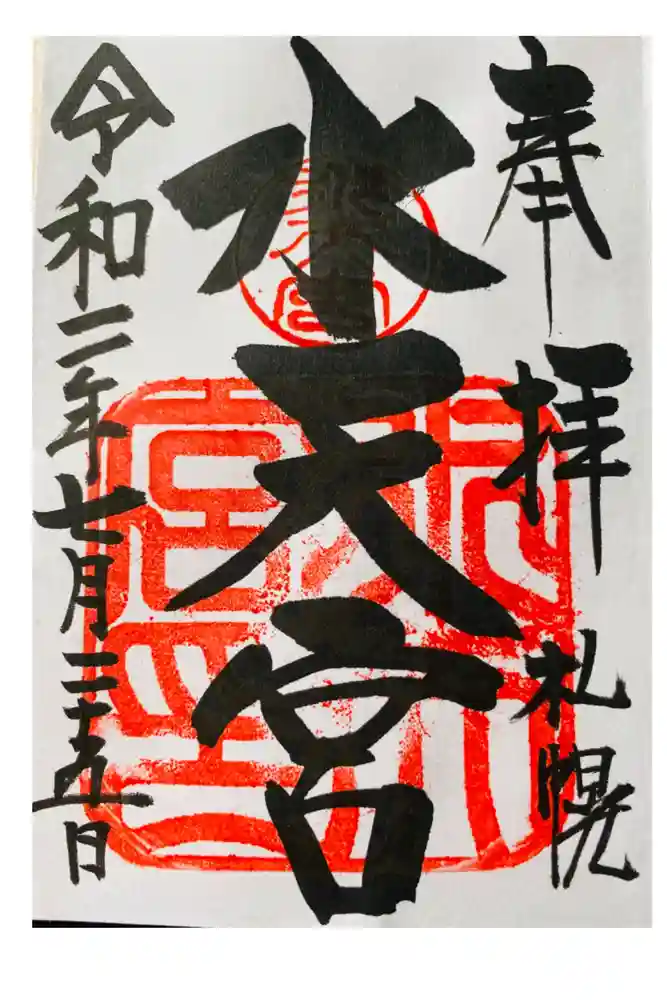 奉拝 札幌
水天宮
令和二年七月二十五日